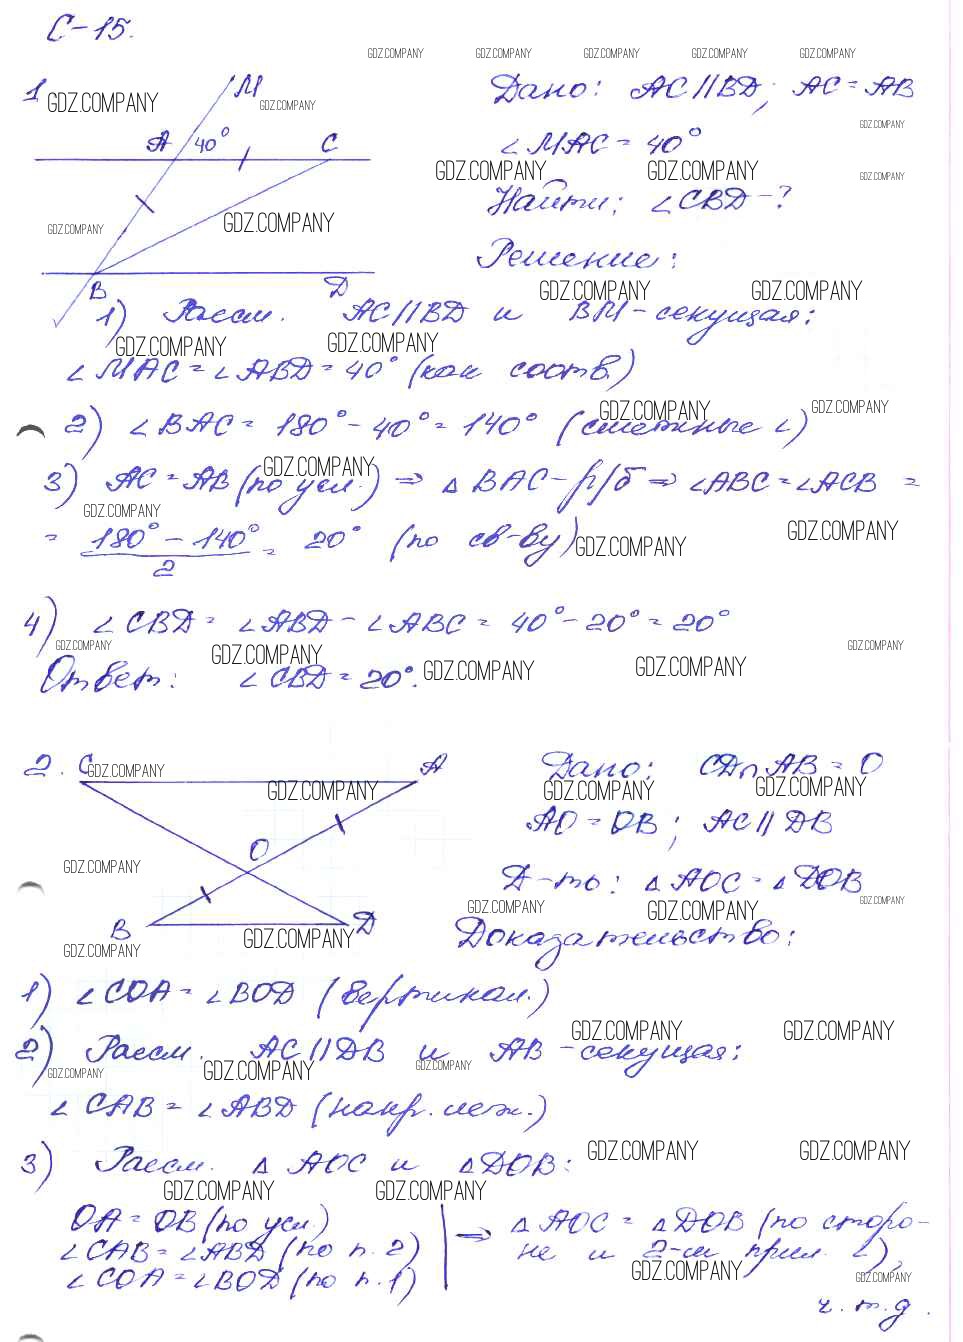 С-15.
GDZ.COMPANY GDZ.COMPANY GDZ.COMPANY GDZ.COMPANY GDZ.COMPANY
1 GDZ.COMPANY M GDZ.COMPANY Дано: AC||BD; AC = AB
GDZ.COMPANY
A 40° C ∠MAC = 40°
GDZ.COMPANY GDZ.COMPANY GDZ.COMPANY
Найти: ∠CBD - ?
GDZ.COMPANY GDZ.COMPANY
Решение:
B D GDZ.COMPANY GDZ.COMPANY
1) Рассм. AC||BD и BM - секущая:
GDZ.COMPANY GDZ.COMPANY
∠MAC = ∠ABD = 40° (как соотв.)
GDZ.COMPANY GDZ.COMPANY
2) ∠BAC = 180° - 40° = 140° (смежные ∠)
GDZ.COMPANY
3) AC = AB (по усл.) ⇒ △BAC - р/б ⇒ ∠ABC = ∠ACB =
GDZ.COMPANY GDZ.COMPANY
= (180° - 140°)/2 = 20° (по св-ву) GDZ.COMPANY
4) ∠CBD = ∠ABD - ∠ABC = 40° - 20° = 20°
GDZ.COMPANY GDZ.COMPANY GDZ.COMPANY
Ответ: ∠CBD = 20°. GDZ.COMPANY GDZ.COMPANY
2. C GDZ.COMPANY A Дано: CD∩AB = O
GDZ.COMPANY GDZ.COMPANY GDZ.COMPANY
AO = OB; AC||DB
O
GDZ.COMPANY
Д-ть: △AOC = △DOB
GDZ.COMPANY GDZ.COMPANY GDZ.COMPANY
B D GDZ.COMPANY Доказательство:
GDZ.COMPANY
1) ∠COA = ∠BOD (вертикал.)
GDZ.COMPANY GDZ.COMPANY
2) Рассм. AC||DB и AB - секущая:
GDZ.COMPANY GDZ.COMPANY GDZ.COMPANY
∠CAB = ∠ABD (накр. леж.)
GDZ.COMPANY GDZ.COMPANY
3) Рассм. △AOC и △DOB:
GDZ.COMPANY GDZ.COMPANY
OA = OB (по усл.)
∠CAB = ∠ABD (по п. 2)
∠COA = ∠BOD (по п. 1)
⇒ △AOC = △DOB (по сторо-
не и 2-м прил. ∠),
GDZ.COMPANY GDZ.COMPANY
ч.т.д.